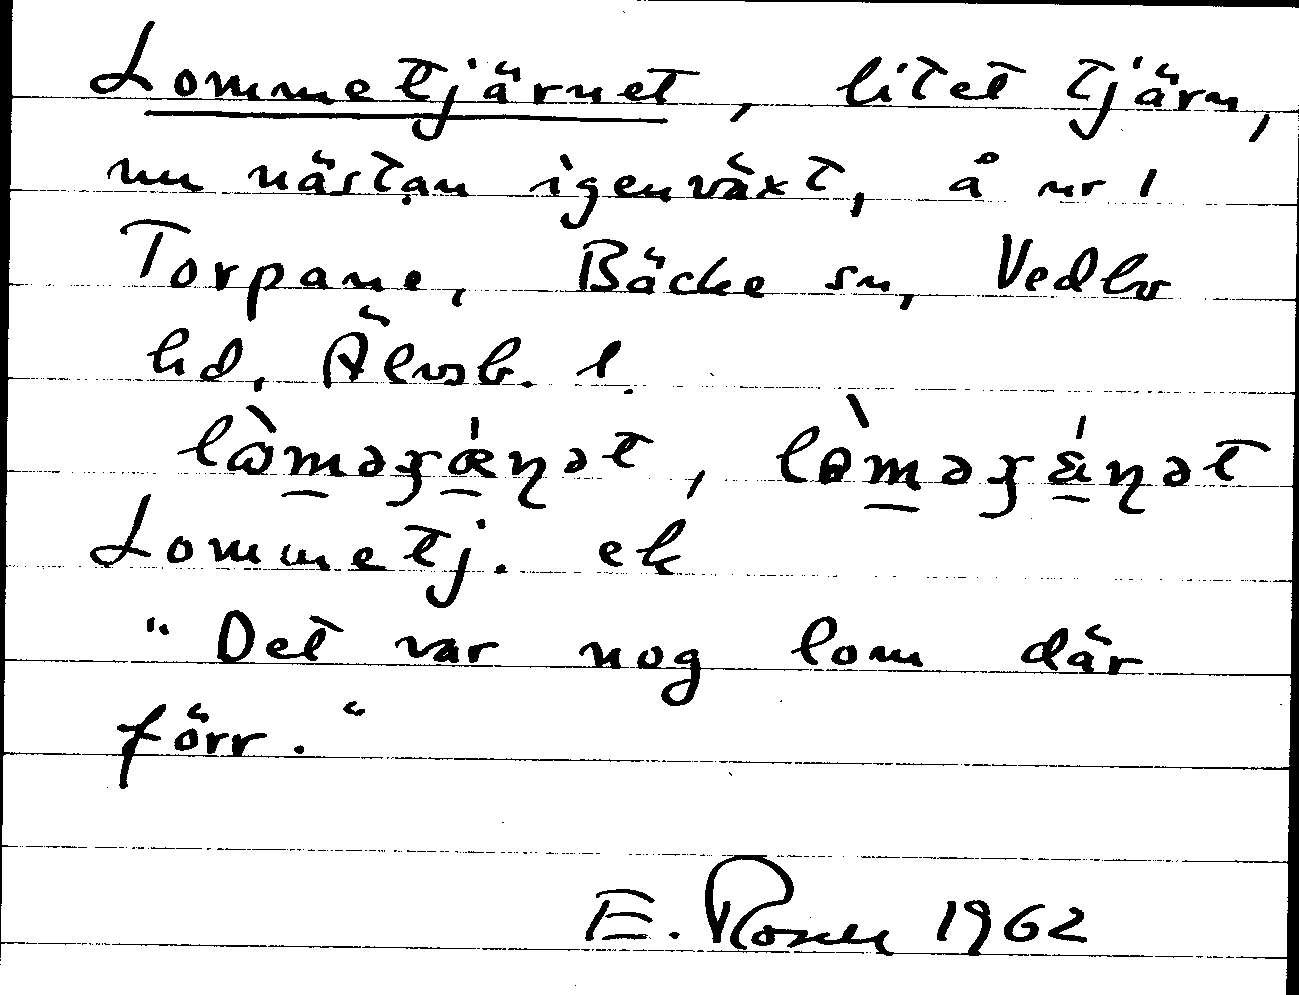 Lommetjärnet, litet tjärn,
nu nästan igenväxt, å nr 1
Torpane, Bäcke sn, Vedbo
hd, Älvsb. l.
Lommetj. ek
"Det var nog lom där
förr."
E. Rosell 1962